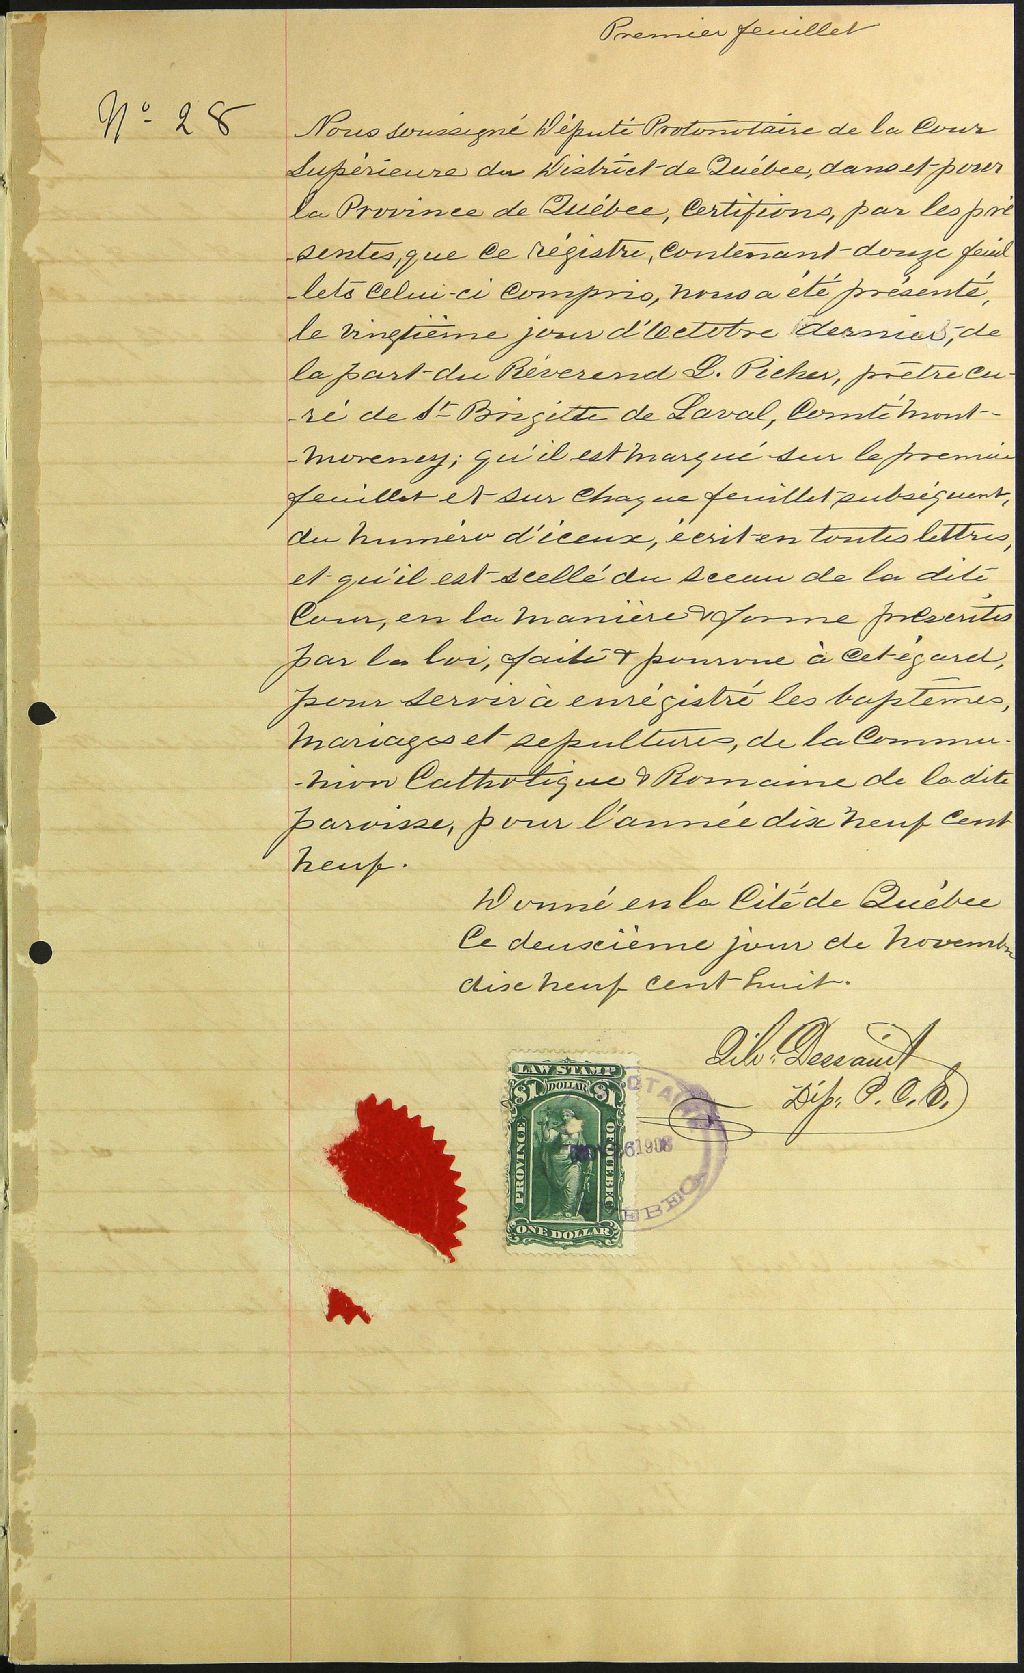 Premier feuillet
No 28
Nous soussigné Député Protonotaire de la Cour
Supérieure du District de Québec, dans et pour
la Province de Québec, certifions, par les pré
sentes, que ce régistre, contenant douze feuil
-lets celui-ci compris, nous a été présenté,
le vingtième jour d'Octobre dernier, de
la part du Révérend L. Picher, prêtre cu-
-ré de St Brigitte de Laval, Comté Mont-
-morency; qu'il est marqué sur le premier
feuillet et sur chaque feuillet subséquent,
du numéro d'iceux, écrit en toutes lettres,
et qu'il est scellé du sceau de la dite
Cour, en la manière & forme préscrites
par la loi, faite & pourvue à cet égard,
pour servir à enrégistré les baptêmes,
Mariages et sépultures, de la Commu-
-nion Catholique & Romaine de la dite
paroisse, pour l'année dix neuf cent
neuf.
Donné en la Cité de Québec
Ce deuxième jour de novembre
dix neuf cent huit.
Dessaint
Dép. P. C. S.
LAW STAMP
$1 DOLLAR $1
PROVINCE OF QUEBEC
ONE DOLLAR
1908